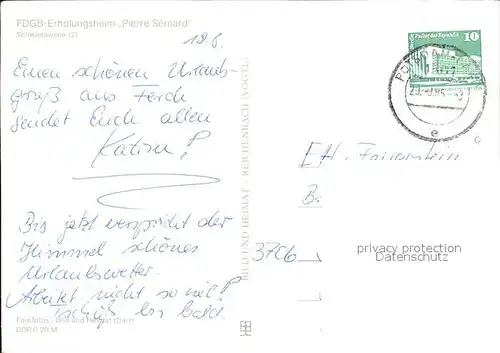 FDGB-Erholungsheim „Pierre Sémard"
Schwielowsee (2)
19.6.
Einen schönen Urlaubs-
gruß aus Ferch
sendet Euch allen
Katrin
Bis jetzt verspricht der
Himmel schönes
Urlaubswetter.
Arbeitet nicht so viel!
Tschüß bis bald.
Farbfotos: Bild und Heimat (Darr)
DDR 0,20 M
BILD UND HEIMAT · REICHENBACH (VOGTL)
Palast der Republik 10
DDR
POTSDAM
e
B.
3706
privacy protection
Datenschutz